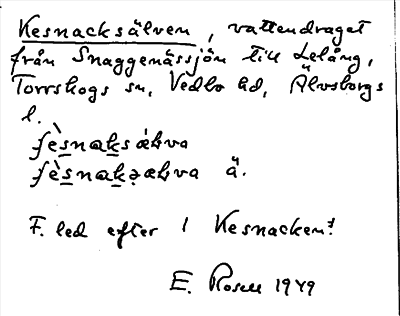 Kesnacksälven, vattendraget
från Snaggenässjön till Lelång,
Torrskogs sn, Vedbo hd, Älvsborgs
l.
ʃèsnaksæ̀ɫva
ʃèsnakəæɫva ä.
F. led efter 1 Kesnacken?
E. Rosell 1949